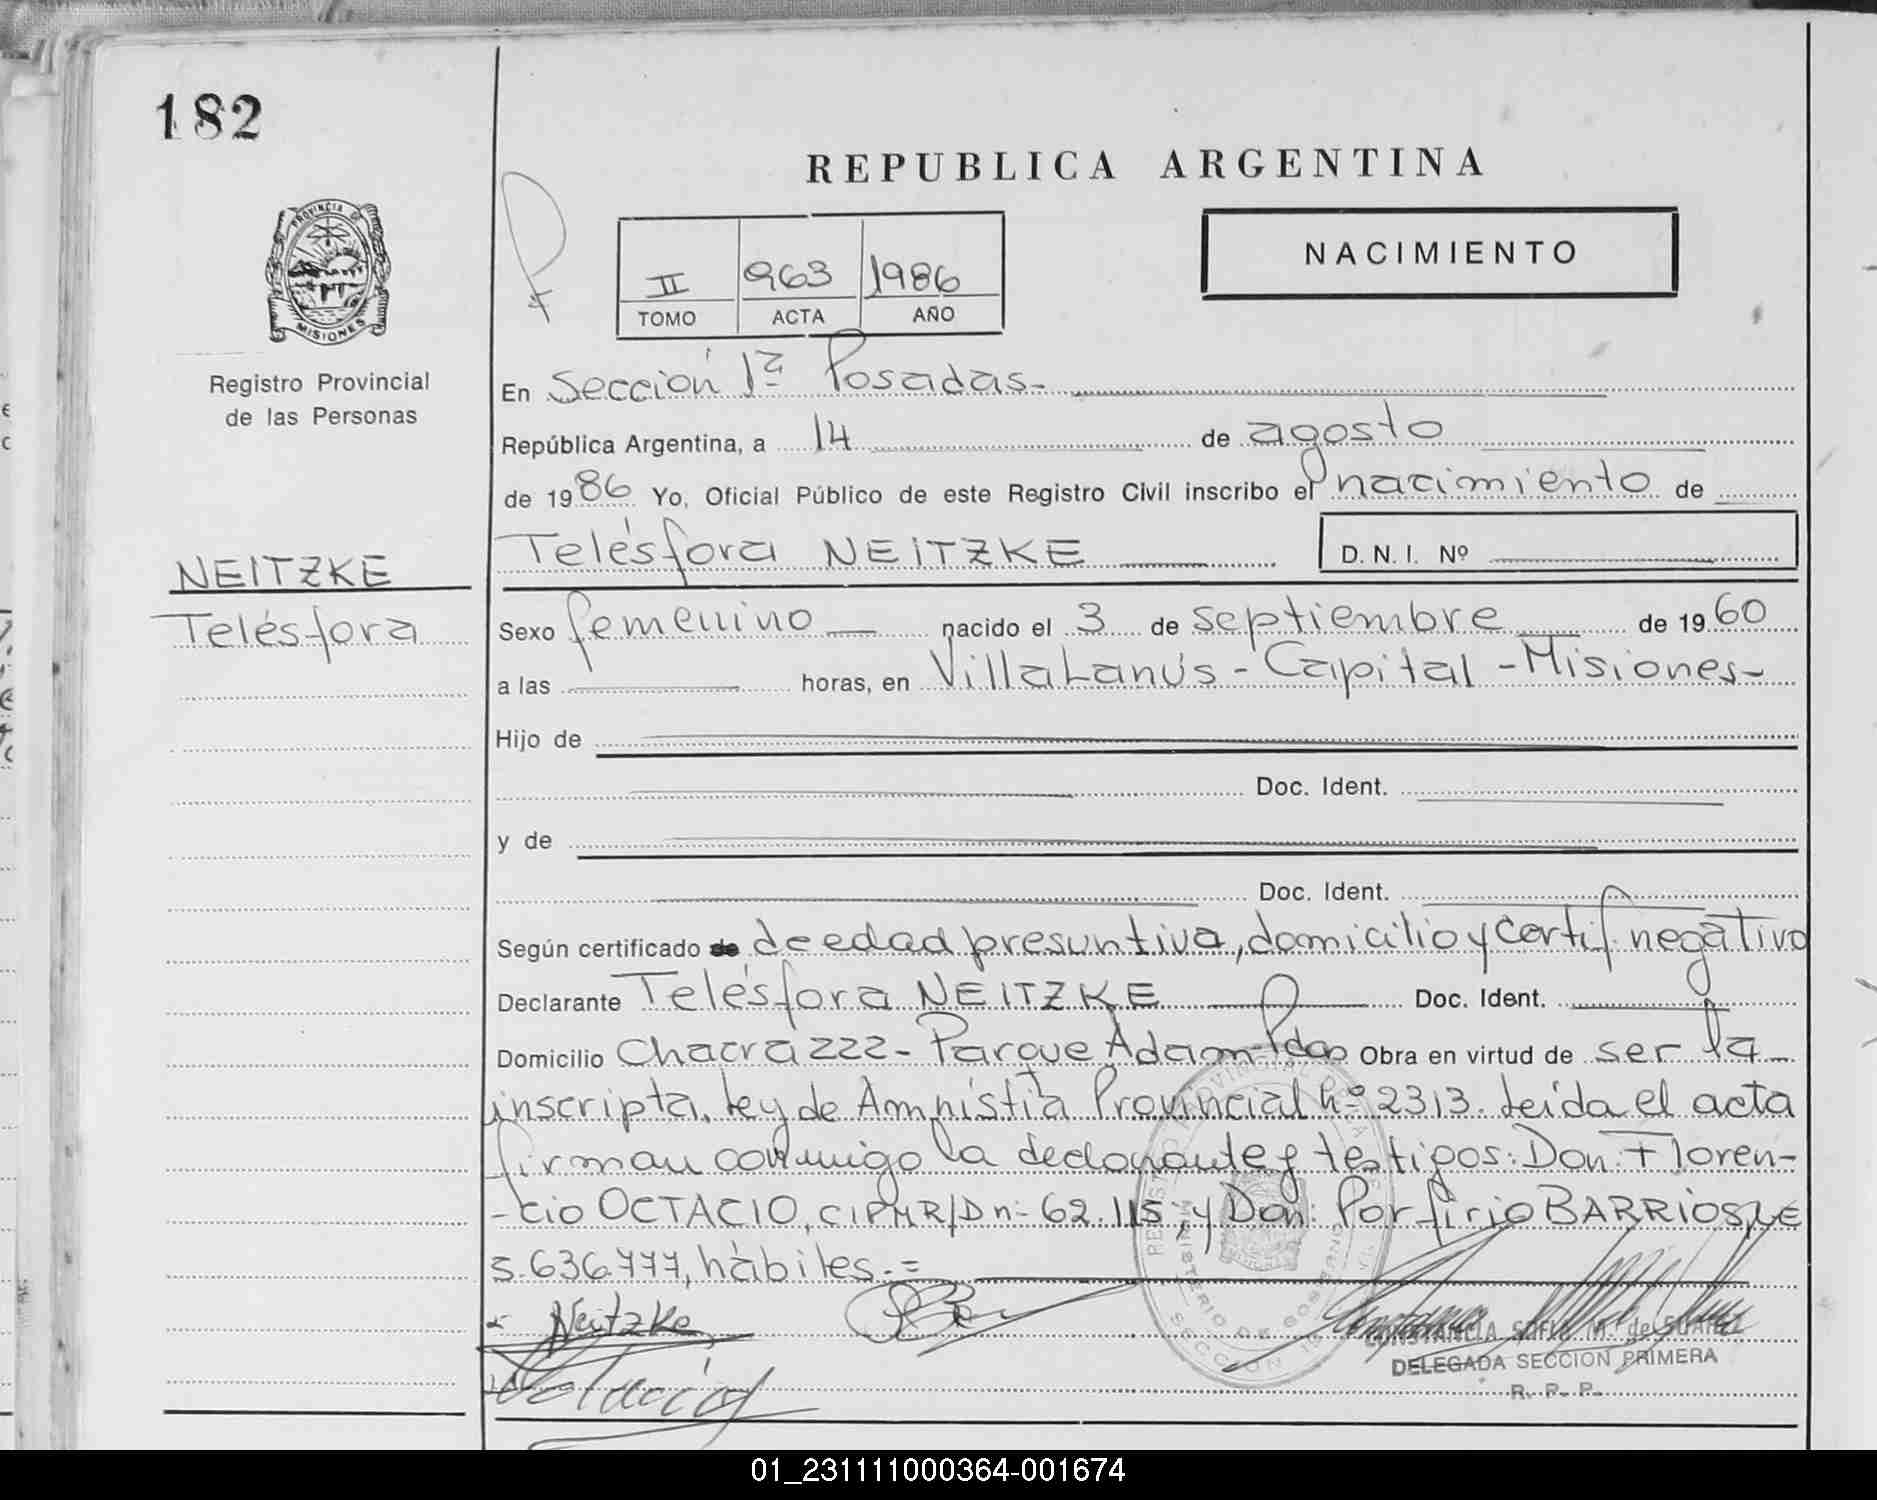 182
REPUBLICA ARGENTINA
NACIMIENTO
II 963 1986
TOMO ACTA AÑO
PROVINCIA DE
MISIONES
Registro Provincial
de las Personas
En Sección 1ª Posadas-
República Argentina, a 14 de agosto
de 1986 Yo, Oficial Público de este Registro Civil inscribo el nacimiento de
Telésfora NEITZKE D.N.I. Nº
NEITZKE
Telésfora
Sexo femenino nacido el 3 de septiembre de 1960
a las horas, en Villa Lanús - Capital - Misiones-
Hijo de
Doc. Ident.
y de
Doc. Ident.
Según certificado de de edad presuntiva, domicilio y certif. negativo
Declarante Telésfora NEITZKE Doc. Ident.
Domicilio Chacra 222- Parque Adam-Pdas Obra en virtud de ser la
inscripta. Ley de Amnistía Provincial nº 2313. Leída el acta
firman conmigo la declarante y testigos: Don: Floren-
-cio OCTACIO, CIPMR/D nº 62.115; y Don: Porfirio BARRIOS, LE
5.636.777, hábiles.=
Neitzke
CONSTANCIA SOFIA M. de SUAREZ
DELEGADA SECCION PRIMERA
R. P. P.
01_231111000364-001674